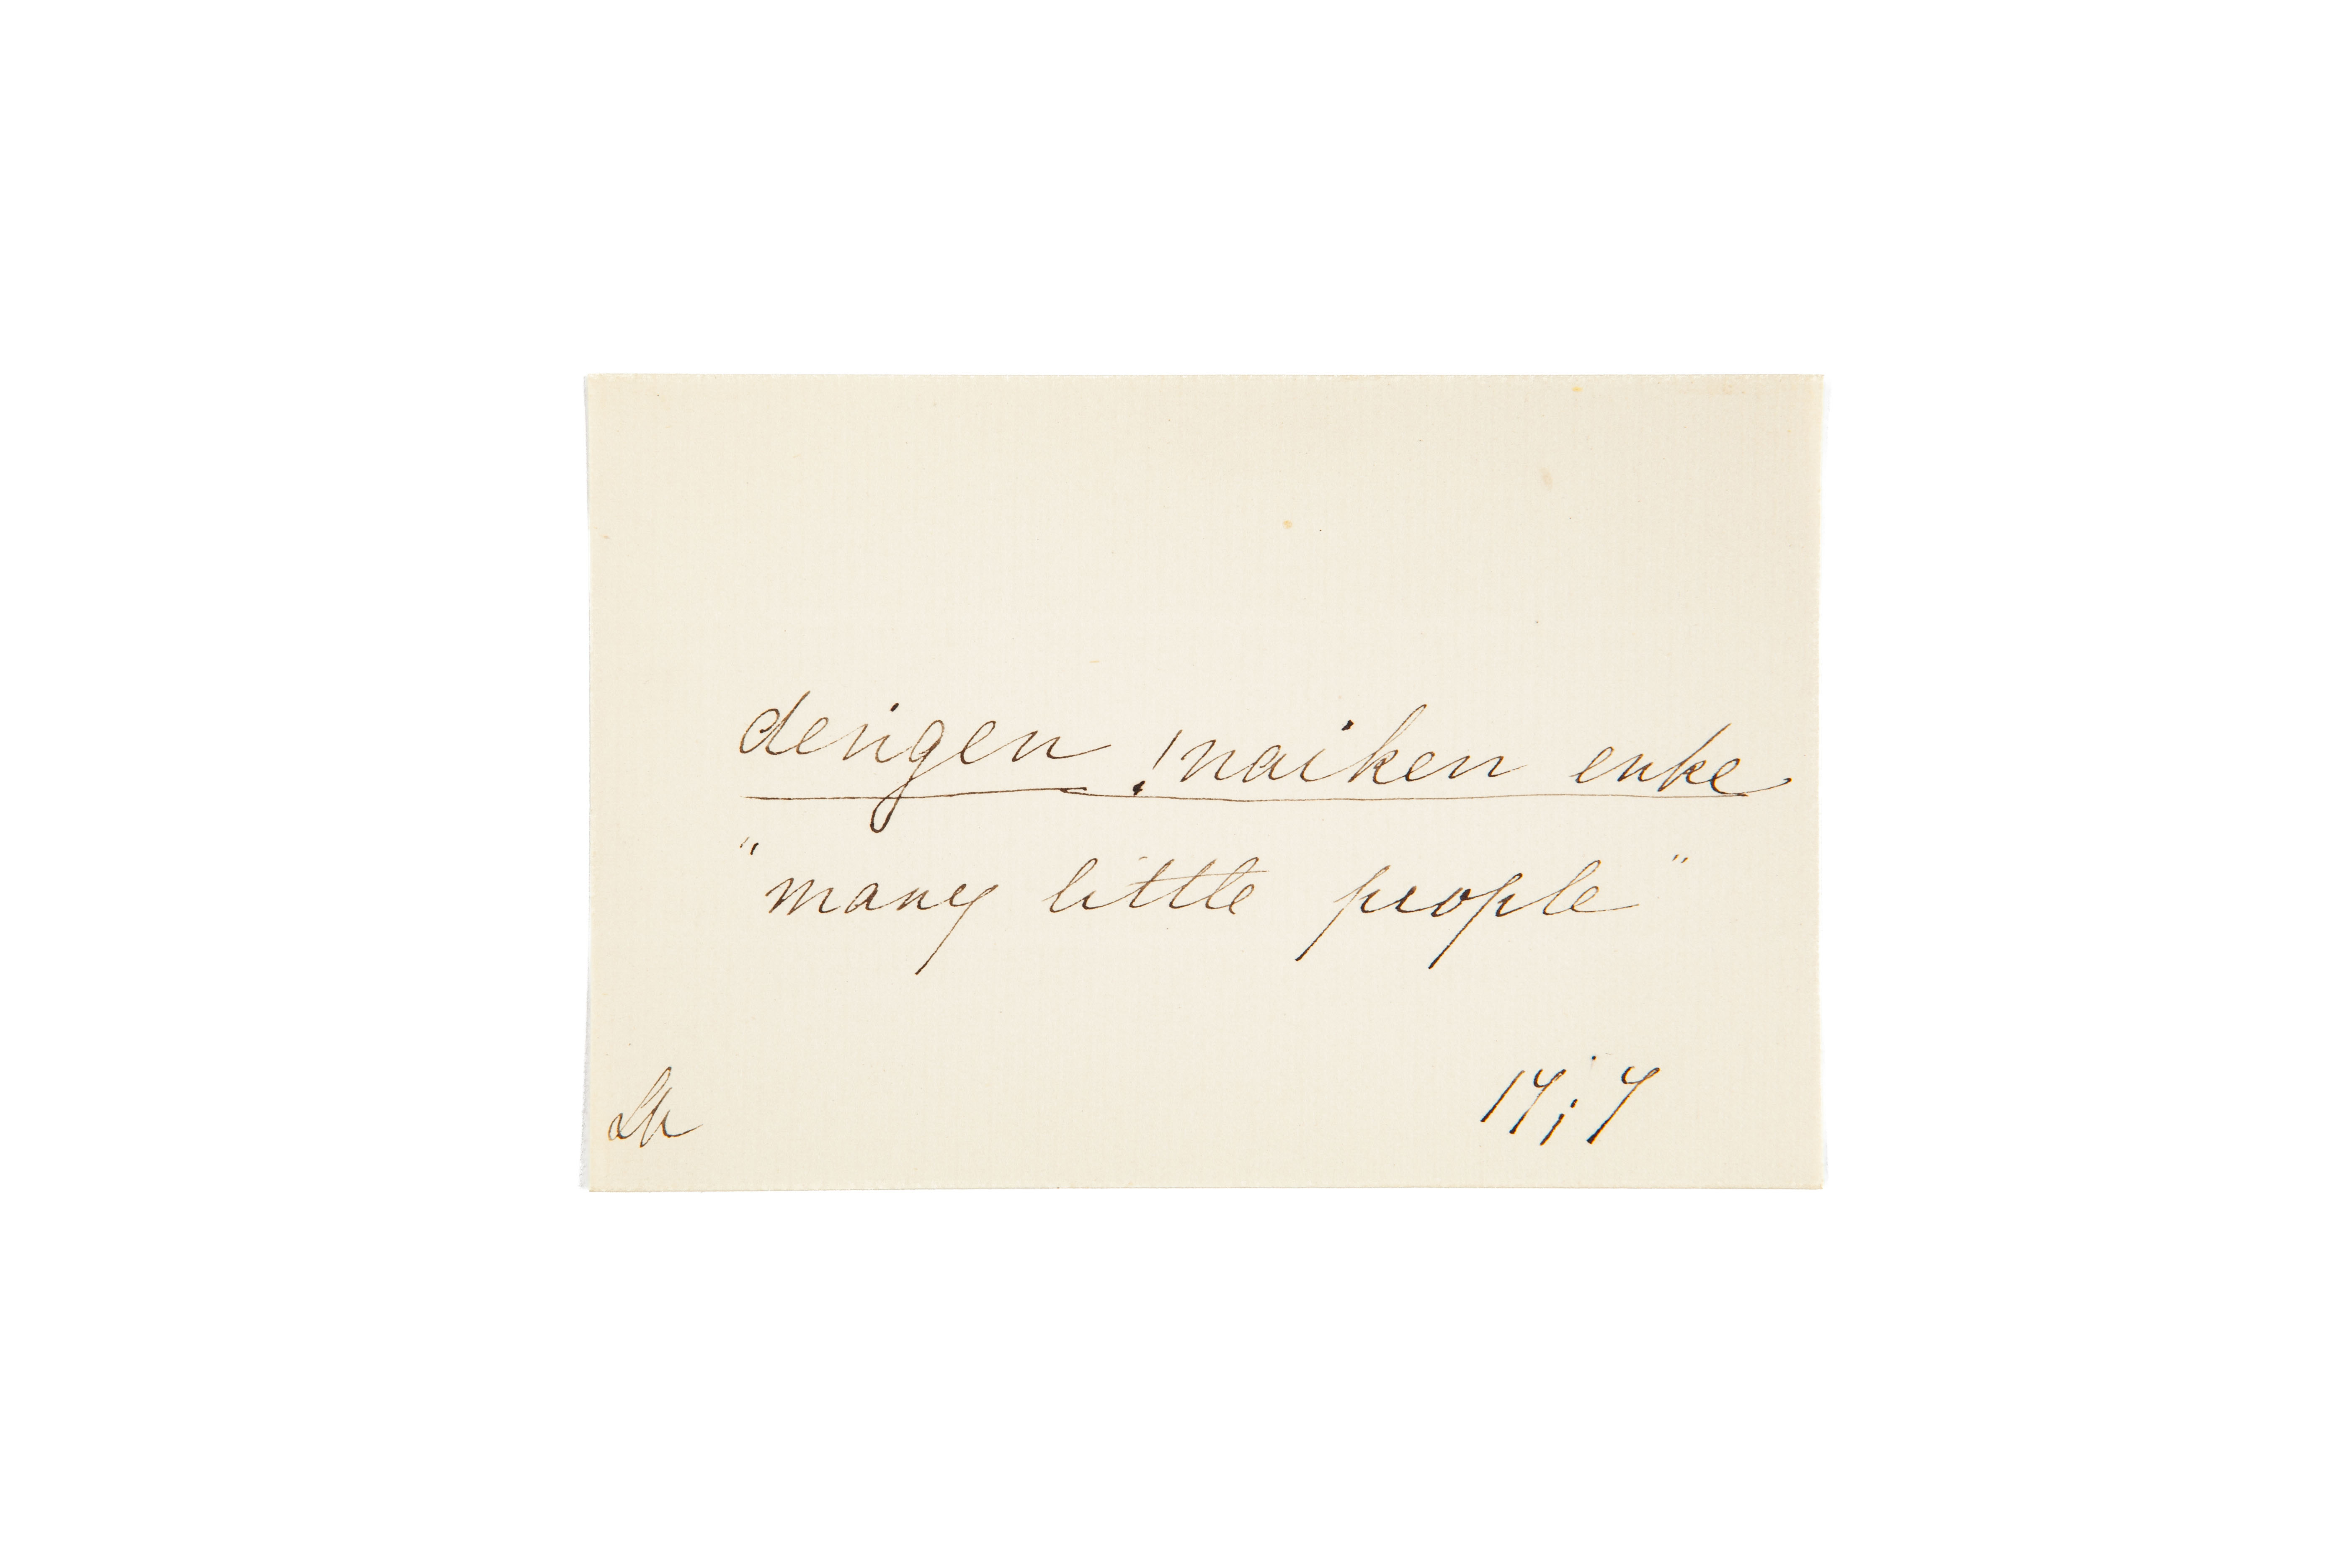 deṅgen !naiken enke
"many little people"
17;7